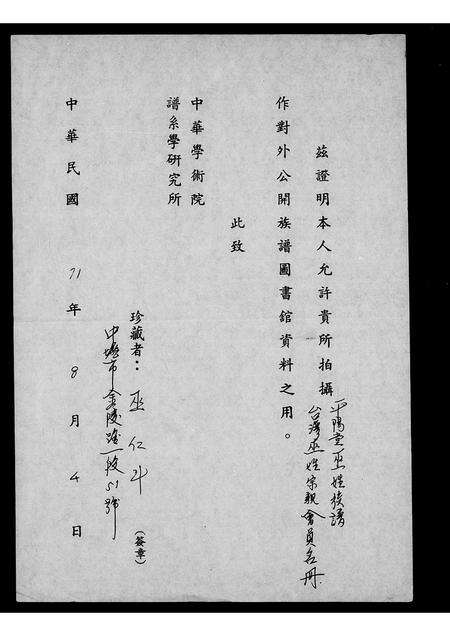 茲證明本人允許貴所拍攝平陽堂巫姓族譜
台灣巫姓宗親會員名冊
作對外公開族譜圖書館資料之用。
此致
中華學術院
譜系學研究所
珍藏者：巫仁斗（簽章）
中壢市金陵路一段51號
中華民國71年8月4日